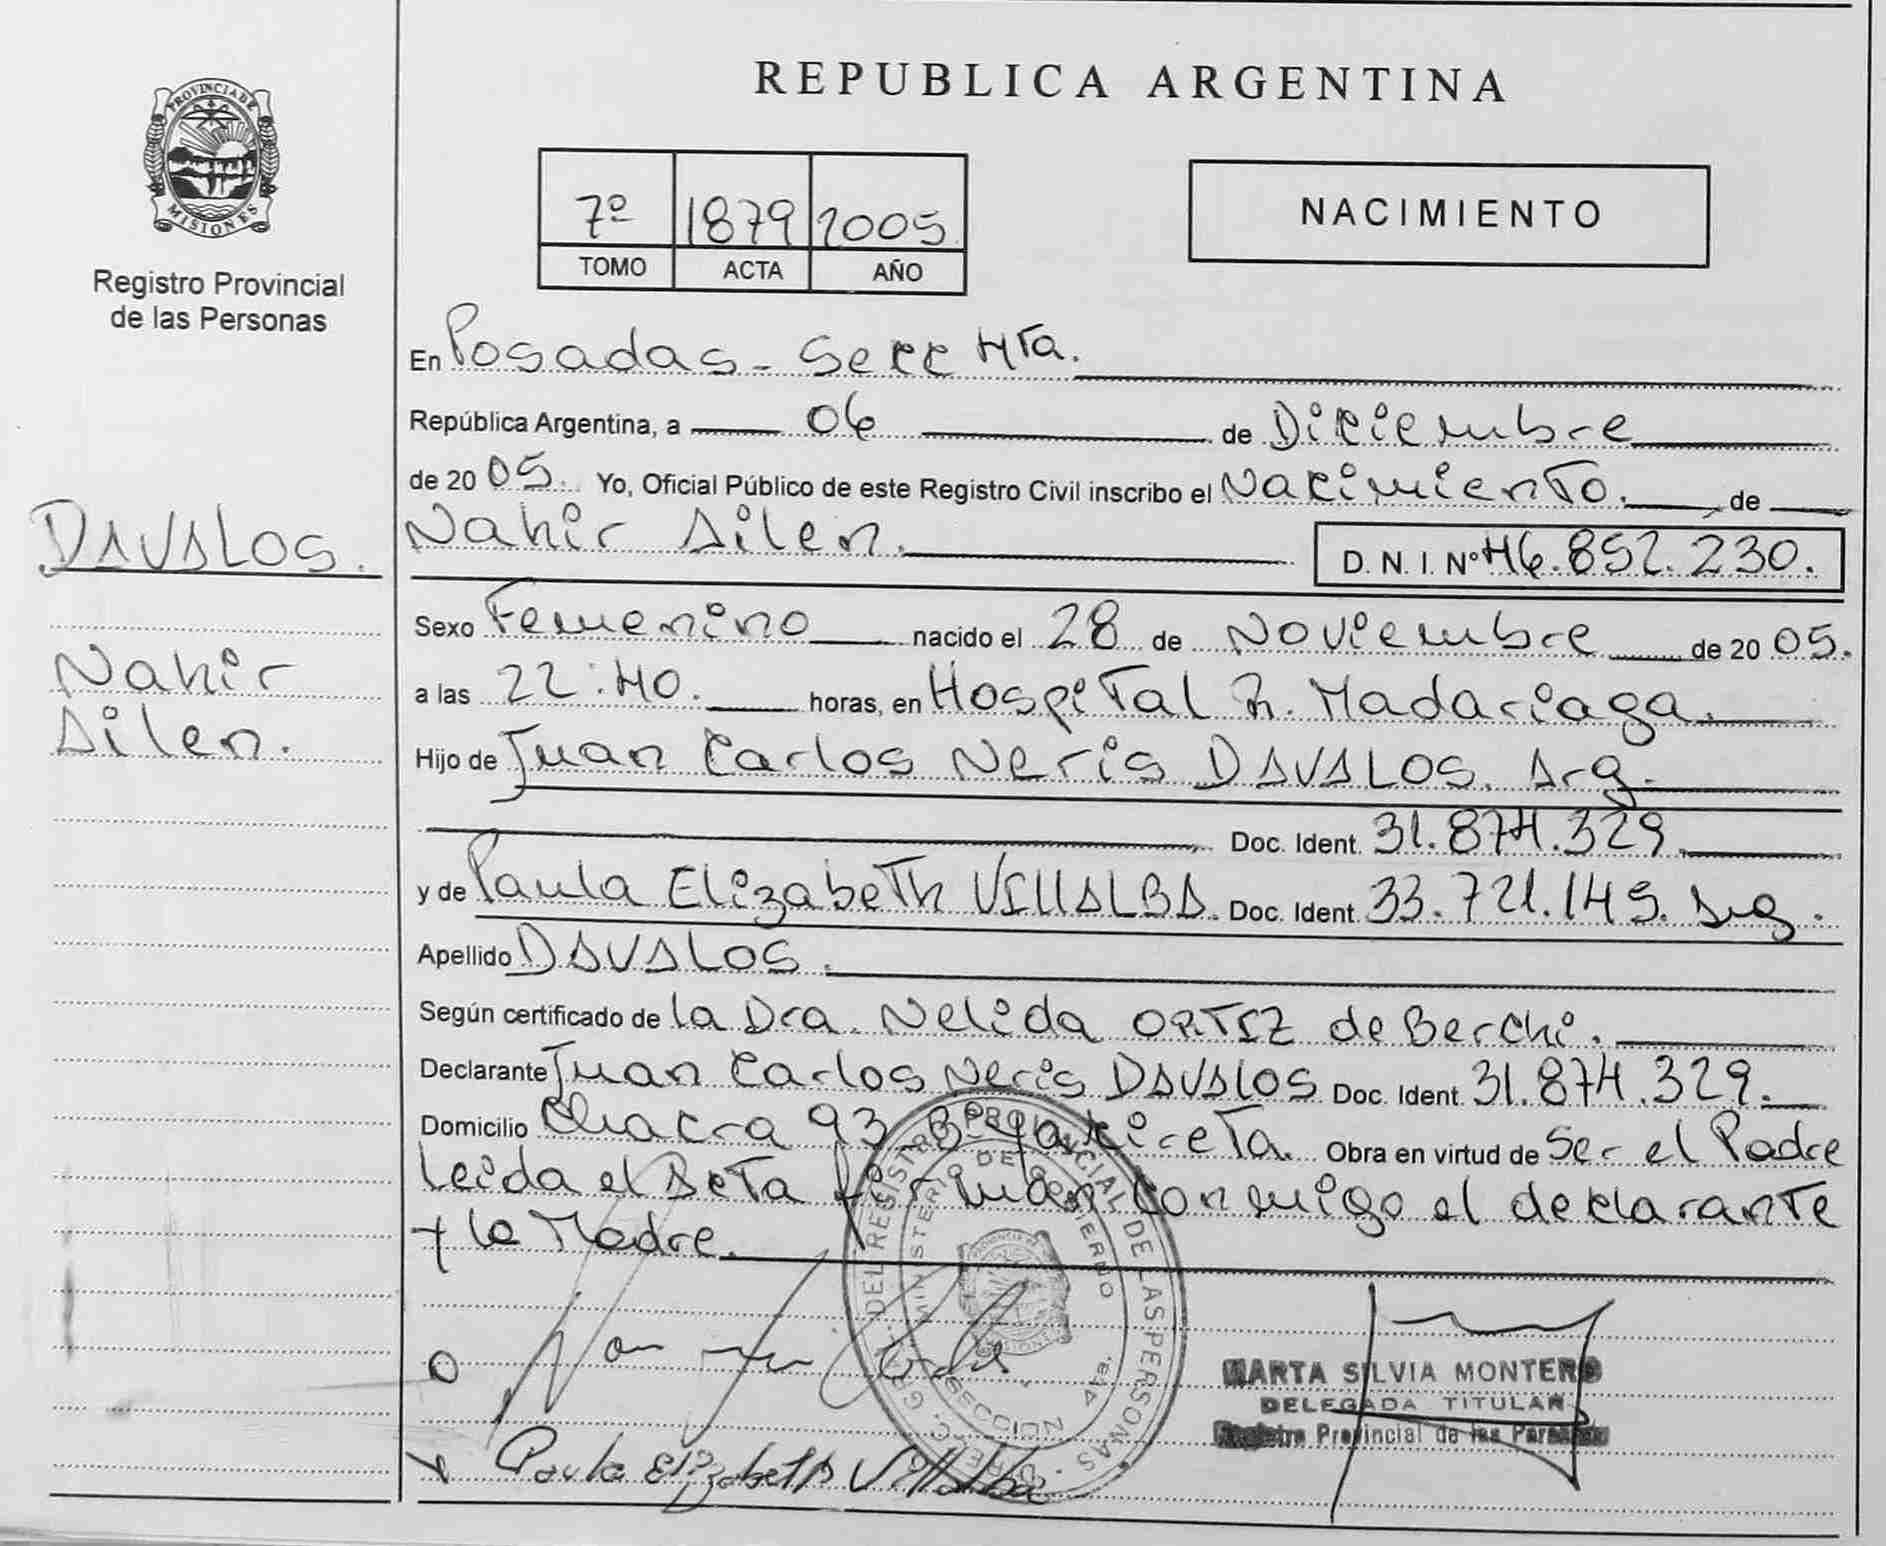 PROVINCIA DE
MISIONES
Registro Provincial
de las Personas
DAVALOS.
Nahir
Ailen.
REPUBLICA ARGENTINA
7º 1879 2005
TOMO ACTA AÑO
NACIMIENTO
En Posadas - Secc 4Ta.
República Argentina, a 06 de Diciembre
de 20 05. Yo, Oficial Público de este Registro Civil inscribo el Nacimiento. de
Nahir Ailen. D. N. I. Nº 46.852.230.
Sexo Femenino nacido el 28 de Noviembre de 20 05.
a las 22:40. horas, en Hospital R. Madariaga.
Hijo de Juan Carlos Neris DAVALOS. Arg.
Doc. Ident. 31.874.329
y de Paula Elizabeth VILLALBA. Doc. Ident. 33.721.145. Arg.
Apellido DAVALOS.
Según certificado de la Dra. Nelida ORTIZ de Berchi.
Declarante Juan Carlos Neris DAVALOS Doc. Ident. 31.874.329.
Domicilio Chacra 93 Bº Yacireta. Obra en virtud de Ser el Padre
Leida el Acta firman conmigo el declarante
y la Madre.
DEL REGISTRO PROVINCIAL DE LAS PERSONAS
MINISTERIO DE GOBIERNO
SECCION 4ta.
MARTA SILVIA MONTERO
DELEGADA TITULAR
Registro Provincial de las Personas
Paula Elizabeth Villalba